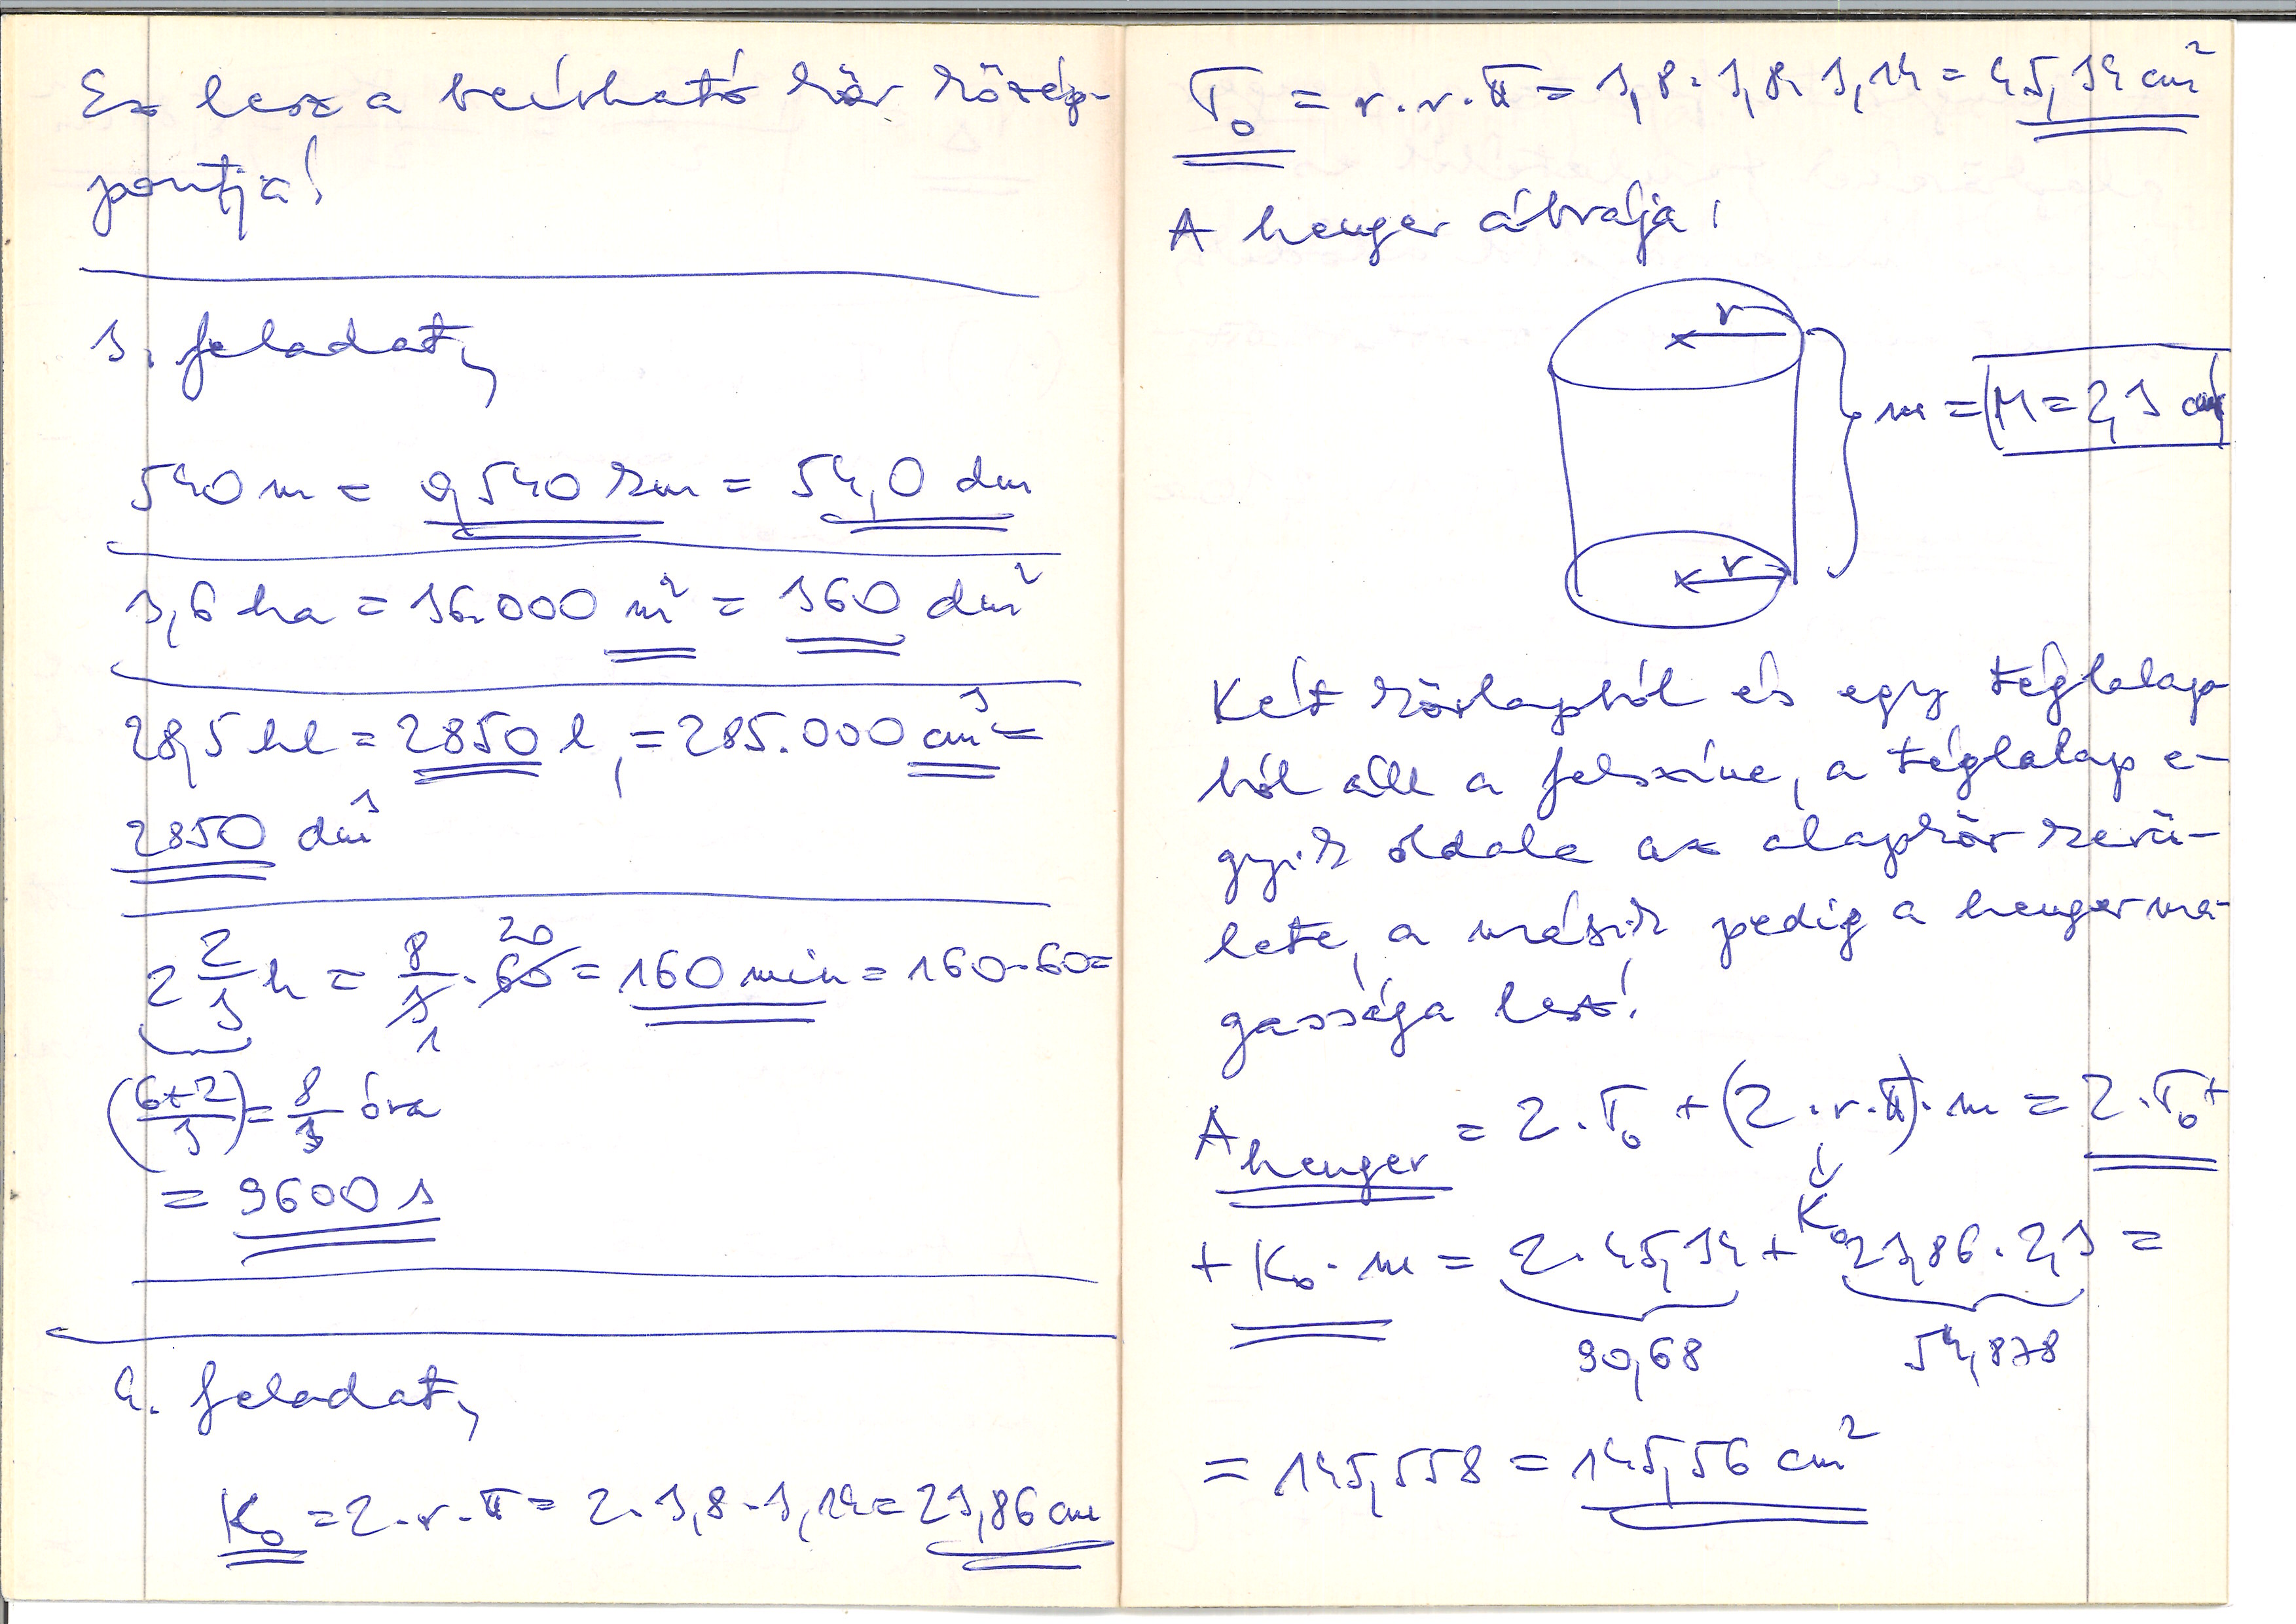 Ez lesz a beírható kör közép-
pontja!
3. feladat,
540 m = 0,540 km = 54,0 dm
3,6 ha = 36.000 m² = 360 dm²
28,5 hl = 2850 l, = 285.000 cm³ =
2850 dm³
2 2/3 h = 8/3 · 60 = 160 min = 160·60=
20
1
(6+2)/3 = 8/3 óra
= 9600 s
4. feladat,
K₀ = 2·r·π = 2·3,8·3,14 = 23,86 cm
T₀ = r·r·π = 3,8·3,8·3,14 = 45,34 cm²
A henger ábrája:
r
m = M = 2,3 cm
r
Két körlapból és egy téglalap
ból áll a felszíne, a téglalap e-
gyik oldala az alapkör kerü-
lete, a másik pedig a henger ma-
gassága lesz!
A henger = 2·T₀ + (2·r·π)·m = 2·T₀ +
K₀
+ K₀·m = 2·45,34 + 23,86·2,3 =
90,68 54,878
= 145,558 = 145,56 cm²